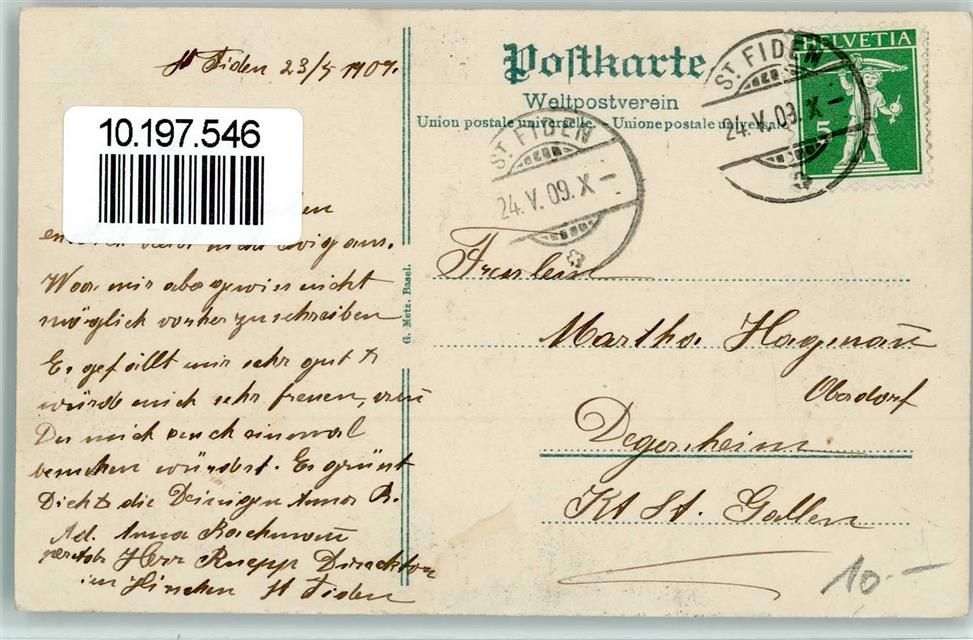 St Fiden 23/5 1909.
10.197.546
en
ewig aus.
War mir aber gewiss nicht
möglich vorher zu schreiben
Es gefällt mir sehr gut &
würde mich sehr freuen, wenn
Du mich auch einmal
besuchen würdest. Es grüsst
Dich & die Deinigen Anna B.
Ad. Anna Bachmann
Herr Direktor
im Hirschen St Fiden
G. Metz. Basel.
Postkarte
Weltpostverein
Union postale universelle. - Unione postale universale
HELVETIA
5
ST. FIDEN
24. V. 09. X -
ST. FIDEN
24. V. 09. X -
Fraulein
Martha Hagmann
Oberdorf
Degersheim
Kt St. Gallen
10.-